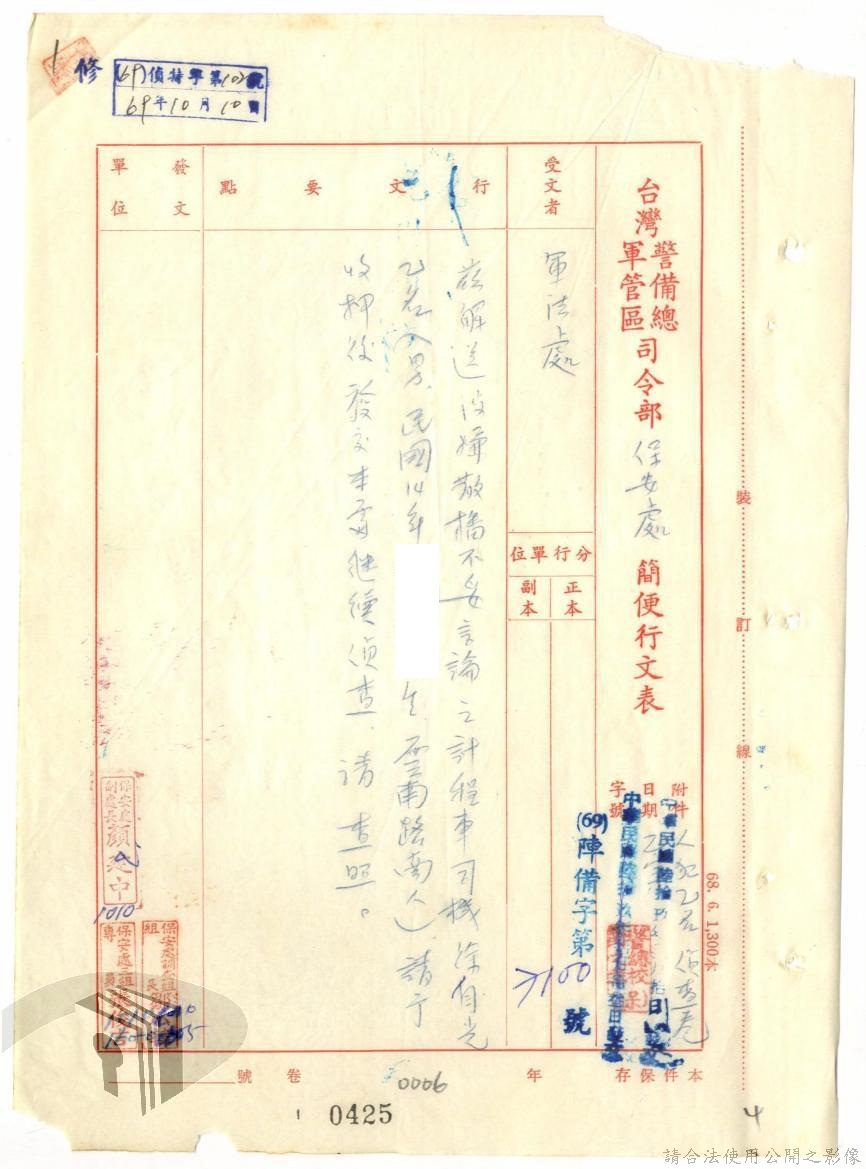 修
(69)偵特字第102號
69年10月10日
台灣警備總司令部
軍管區
保安處
簡便行文表
附件 人犯乙名 偵查卷
日期
字號
(69)陣備字第
7100
號
受文者
軍法處
分行單位
正本
副本
行文要點
茲解送涉嫌散播不妥言論之計程車司機徐
乙名(男,民國14年
生,雲南路南人)請于
收押後發交本處繼續偵查,請查照。
發文單位
保安處
副處長
1010
保安處三組
專員
68. 6. 1,300本
裝
訂
線
本件保存
年
卷
號
0006
0425
4
請合法使用公開之影像